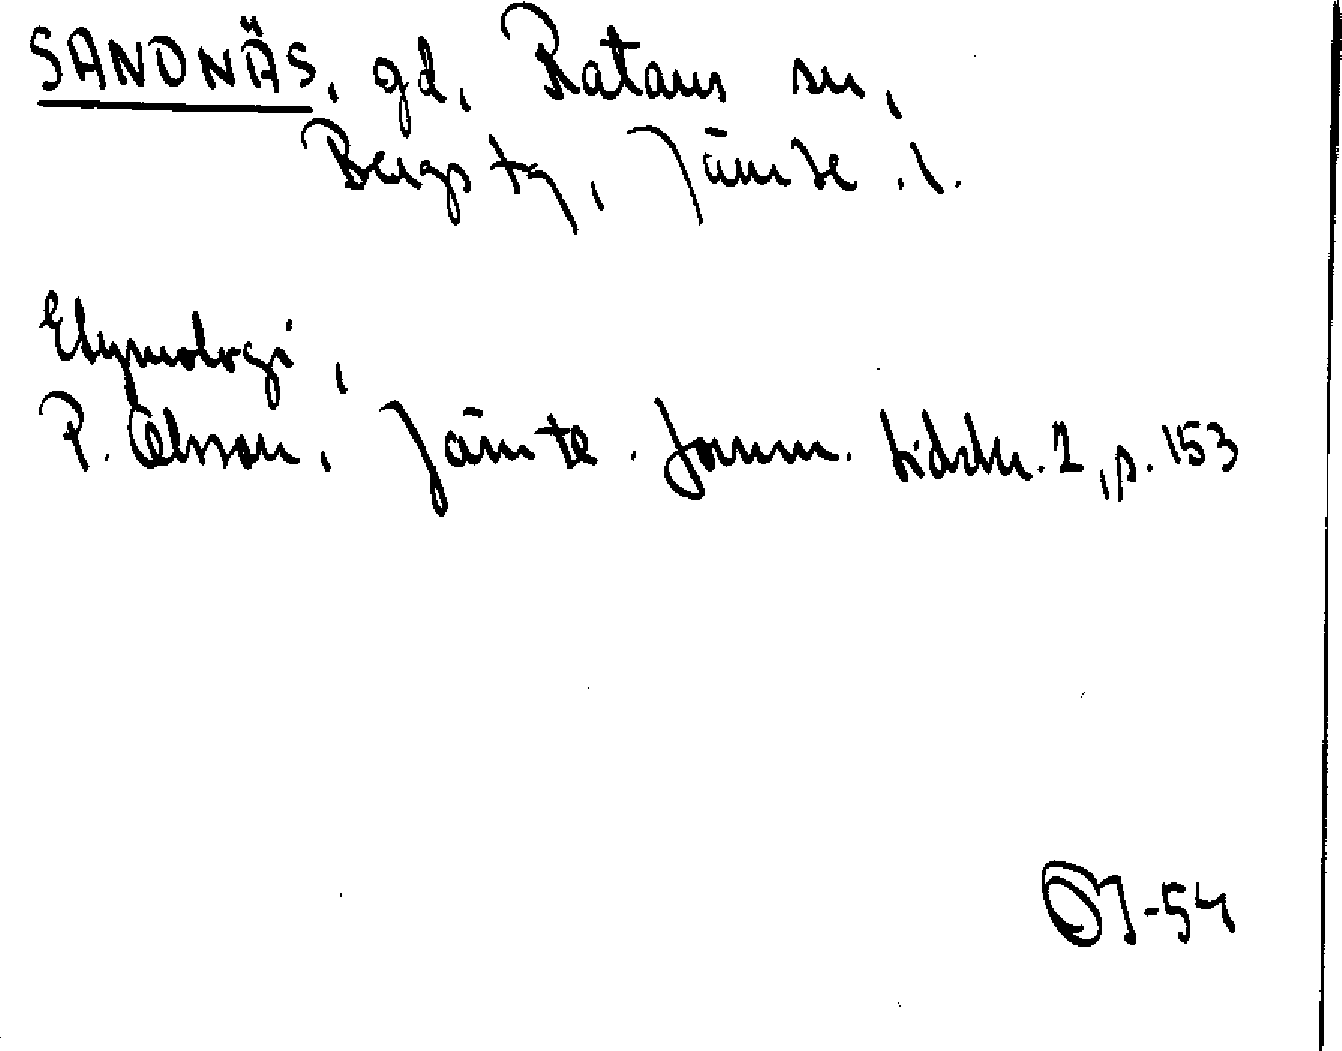 SANDNÄS, gd, Ratans sn,
Bergs tg, Jämtl. l.
Etymologi,
P. Olsson, Jämtl. fornm. tidskr. 2, p. 153
-54